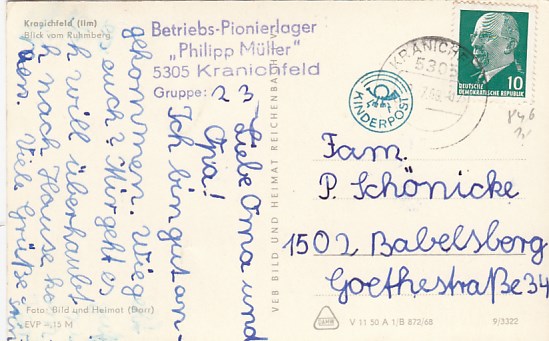 Kranichfeld (Ilm)
Blick vom Ruhmberg
Betriebs-Pionierlager
„Philipp Müller"
5305 Kranichfeld
Gruppe: 23
Liebe Oma und
Opa!
Ich bin gut an-
gekommen. Wie ge
es euch? Mir geht es
h will überhaubt
nach Hause ko
Viele Grüße
Foto: Bild und Heimat (Darr)
EVP -.15 M
VEB BILD UND HEIMAT REICHENBACH
KRANICHF
5305
KINDERPOST
10
DEUTSCHE
DEMOKRATISCHE REPUBLIK
Fam.
P. Schönicke
1502 Babelsberg
Goethestraße 34
V 11 50 A 1/B 872/68
9/3322